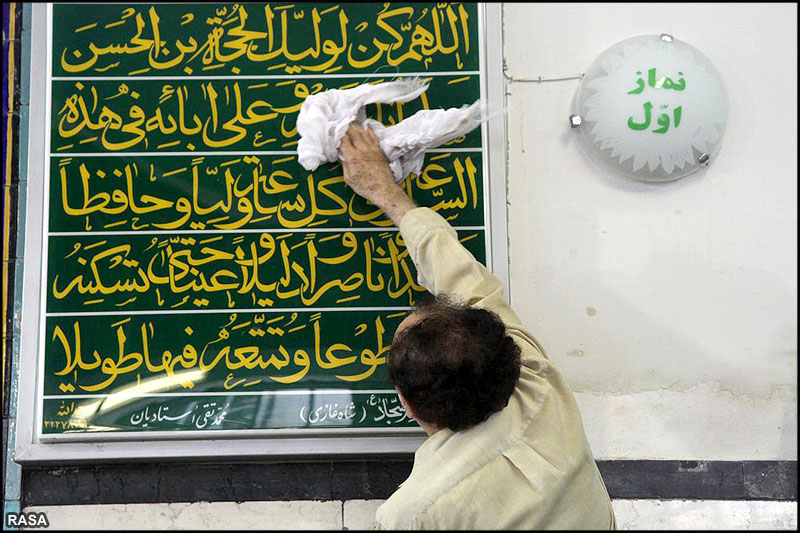 اللّهُمَّ كُنْ لِوَلِيِّكَ الحُجَّةِ بْنِ الحَسَنِ
وَعَلى ابائِهِ في هذِهِ
كُلِّ ساعَةٍ وَلِيّاً وَحافِظاً
وَناصِراً وَدَليلاً وَعَيْناً حَتّى تُسْكِنَهُ
طَوْعاً وَتُمَتِّعَهُ فيها طَويلا
(شاه غازی) محمد تقی استادیان
نماز
اوّل
RASA